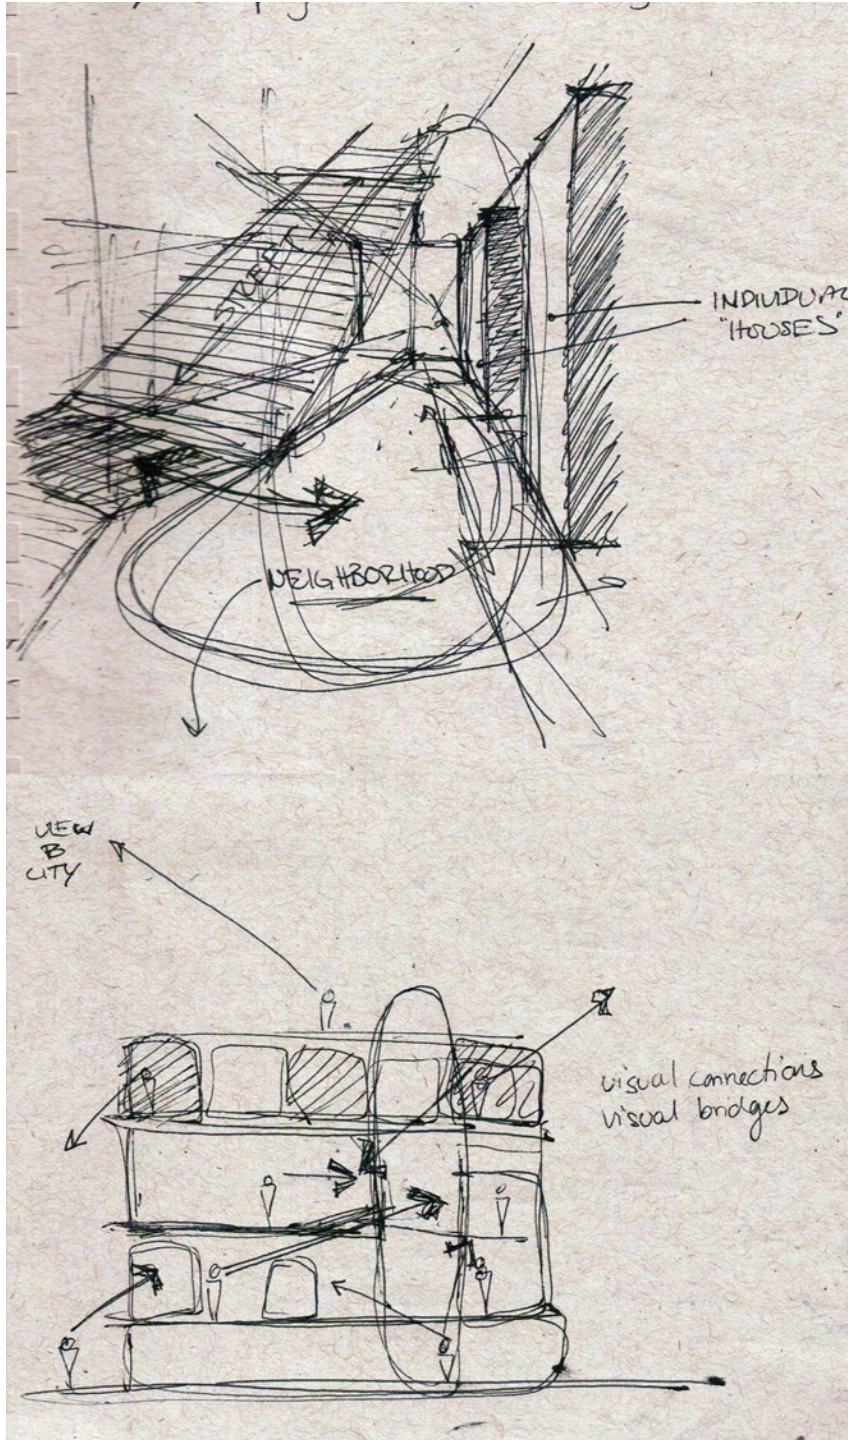 STREET
INDIVIDUAL
"HOUSES"
NEIGHBORHOOD
VIEW
CITY
visual connections
visual bridges